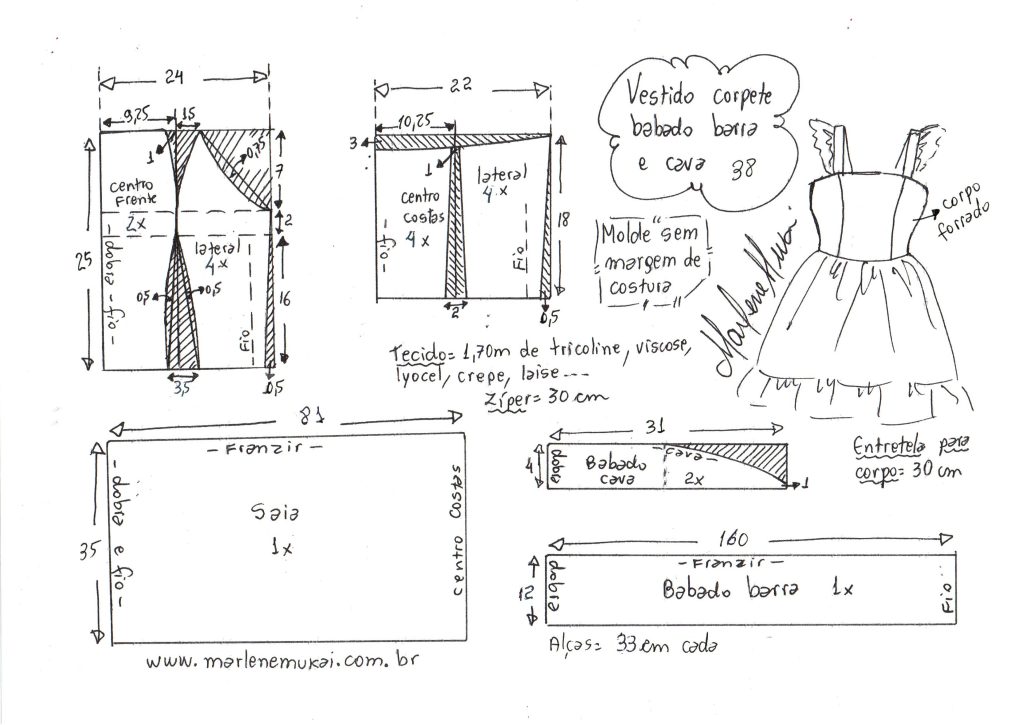 24
9,25
1,5
1
0,75
7
centro
Frente
2x
2
lateral
4x
25
- dobra - fio -
0,5
0,5
16
Fio
3,5
0,5
22
10,25
3
1
lateral
4x
centro
costas
4x
fio
Fio
18
2
0,5
Vestido corpete
babado barra
e cava 38
Molde sem
margem de
costura
Marlene Mukai
corpo
forrado
Tecido= 1,70m de tricoline, viscose,
lyocel, crepe, laise ---
Zíper= 30 cm
81
- Franzir -
- dobra e fio -
Saia
1x
35
centro costas
www.marlenemukai.com.br
31
4
dobra
Babado
cava
cava
2x
1
Entretela para
corpo= 30 cm
160
- Franzir -
12
dobra
Babado barra 1x
Fio
Alças= 33 cm cada